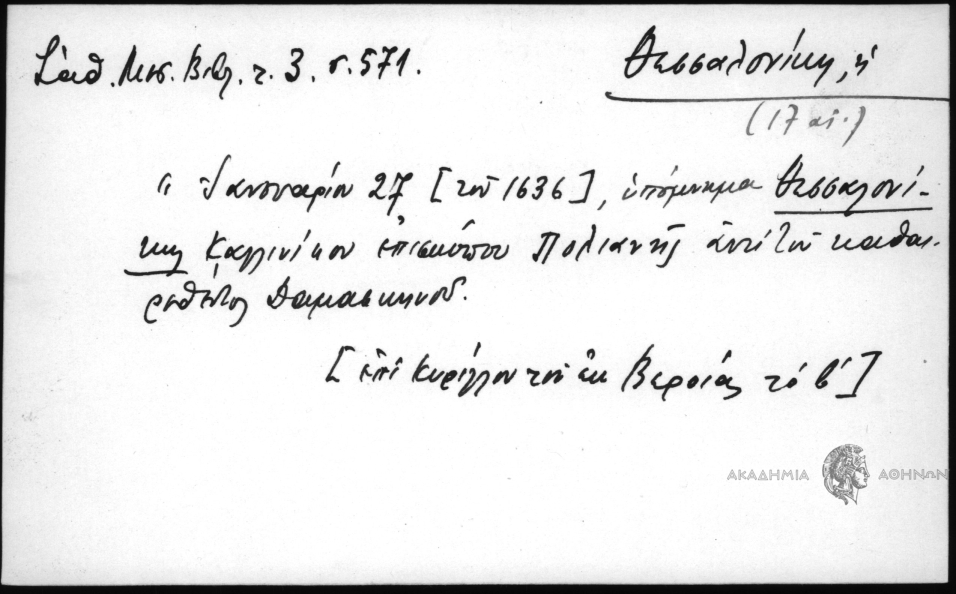 Σάθ. Μεσ. Βιβλ. τ. 3. σ. 571.
Θεσσαλονίκη, ἡ
(17 αἰ.)
" Ἰανουαρίου 27 [τοῦ 1636], ὑπόμνημα Θεσσαλονί-
κης Καλλινίκου ἐπισκόπου Πολιανῆς ἀντὶ τοῦ καθαι-
ρεθέντος Δαμασκηνοῦ.
[ἐπὶ Κυρίλλου τοῦ ἐκ Βεροίας τό β']
ΑΚΑΔΗΜΙΑ ΑΘΗΝΩΝ